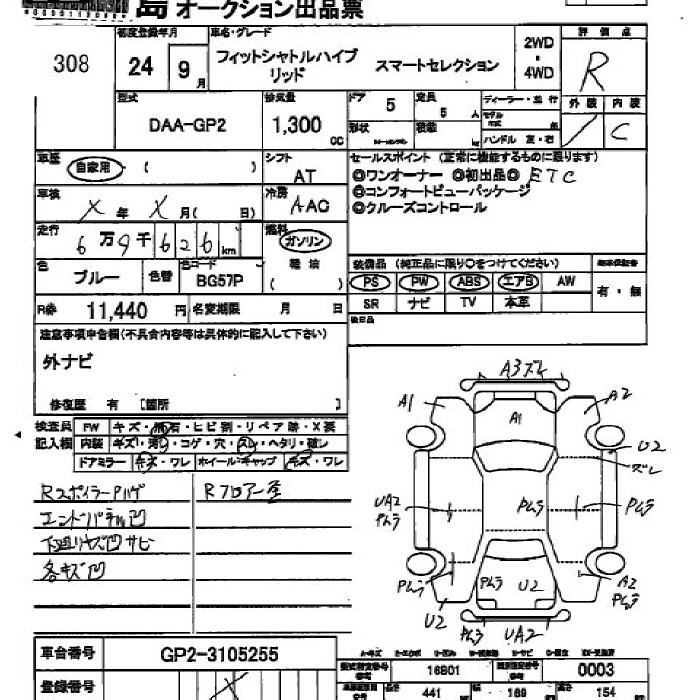 島 オークション出品票
308
初度登録年月
24 年 9 月
車名・グレード
フィットシャトルハイブリッド スマートセレクション
2WD
・
4WD
評価点
R
型式
DAA-GP2
排気量
1,300 cc
ドア 5
定員 5 人
形状
積載 kg
ディーラー・並行
モデル年式 年
ハンドル 左・右
外装 内装
/ C
車歴
自家用 ( )
シフト
AT
セールスポイント (正常に機能するものに限ります)
◎ワンオーナー ◎初出品◎ ETC
◎コンフォートビューパッケージ
◎クルーズコントロール
車検
X 年 X 月( 日)
冷房
AAC
走行
6万9千626km
燃料
ガソリン
軽油
( )
色
ブルー
色替
色コード
BG57P
装備品 (純正品に限り○をつけてください)
PS PW ABS エアB AW
SR ナビ TV 本革
有・無
R券 11,440 円 名変期限 月 日
後日品
注意事項申告欄(不具合内容等は具体的に記入して下さい)
外ナビ
修復歴 有 [箇所 ]
検査員記入欄
FW キズ・飛石・ヒビ割・リペア跡・X要
内装 キズ・汚・コゲ・穴・スレ・ヘタリ・破レ
ドアミラー キズ・ワレ ホイール・キャップ キズ・ワレ
RスポイラーPハゲ
Rフロアー歪
エンドパネル凹
下廻りキズ凹サビ
各キズ凹
A3ズレ
A1
A2
A1
U2
ズレ
UA2
Pムラ
Pムラ
Pムラ
Pムラ
Pムラ
U2
A2
Pムラ
U2
Pムラ
UA2
車台番号 GP2-3105255
登録番号
型式指定番号
16801
類別区分番号
0003
長さ 441
幅 169
高さ 154